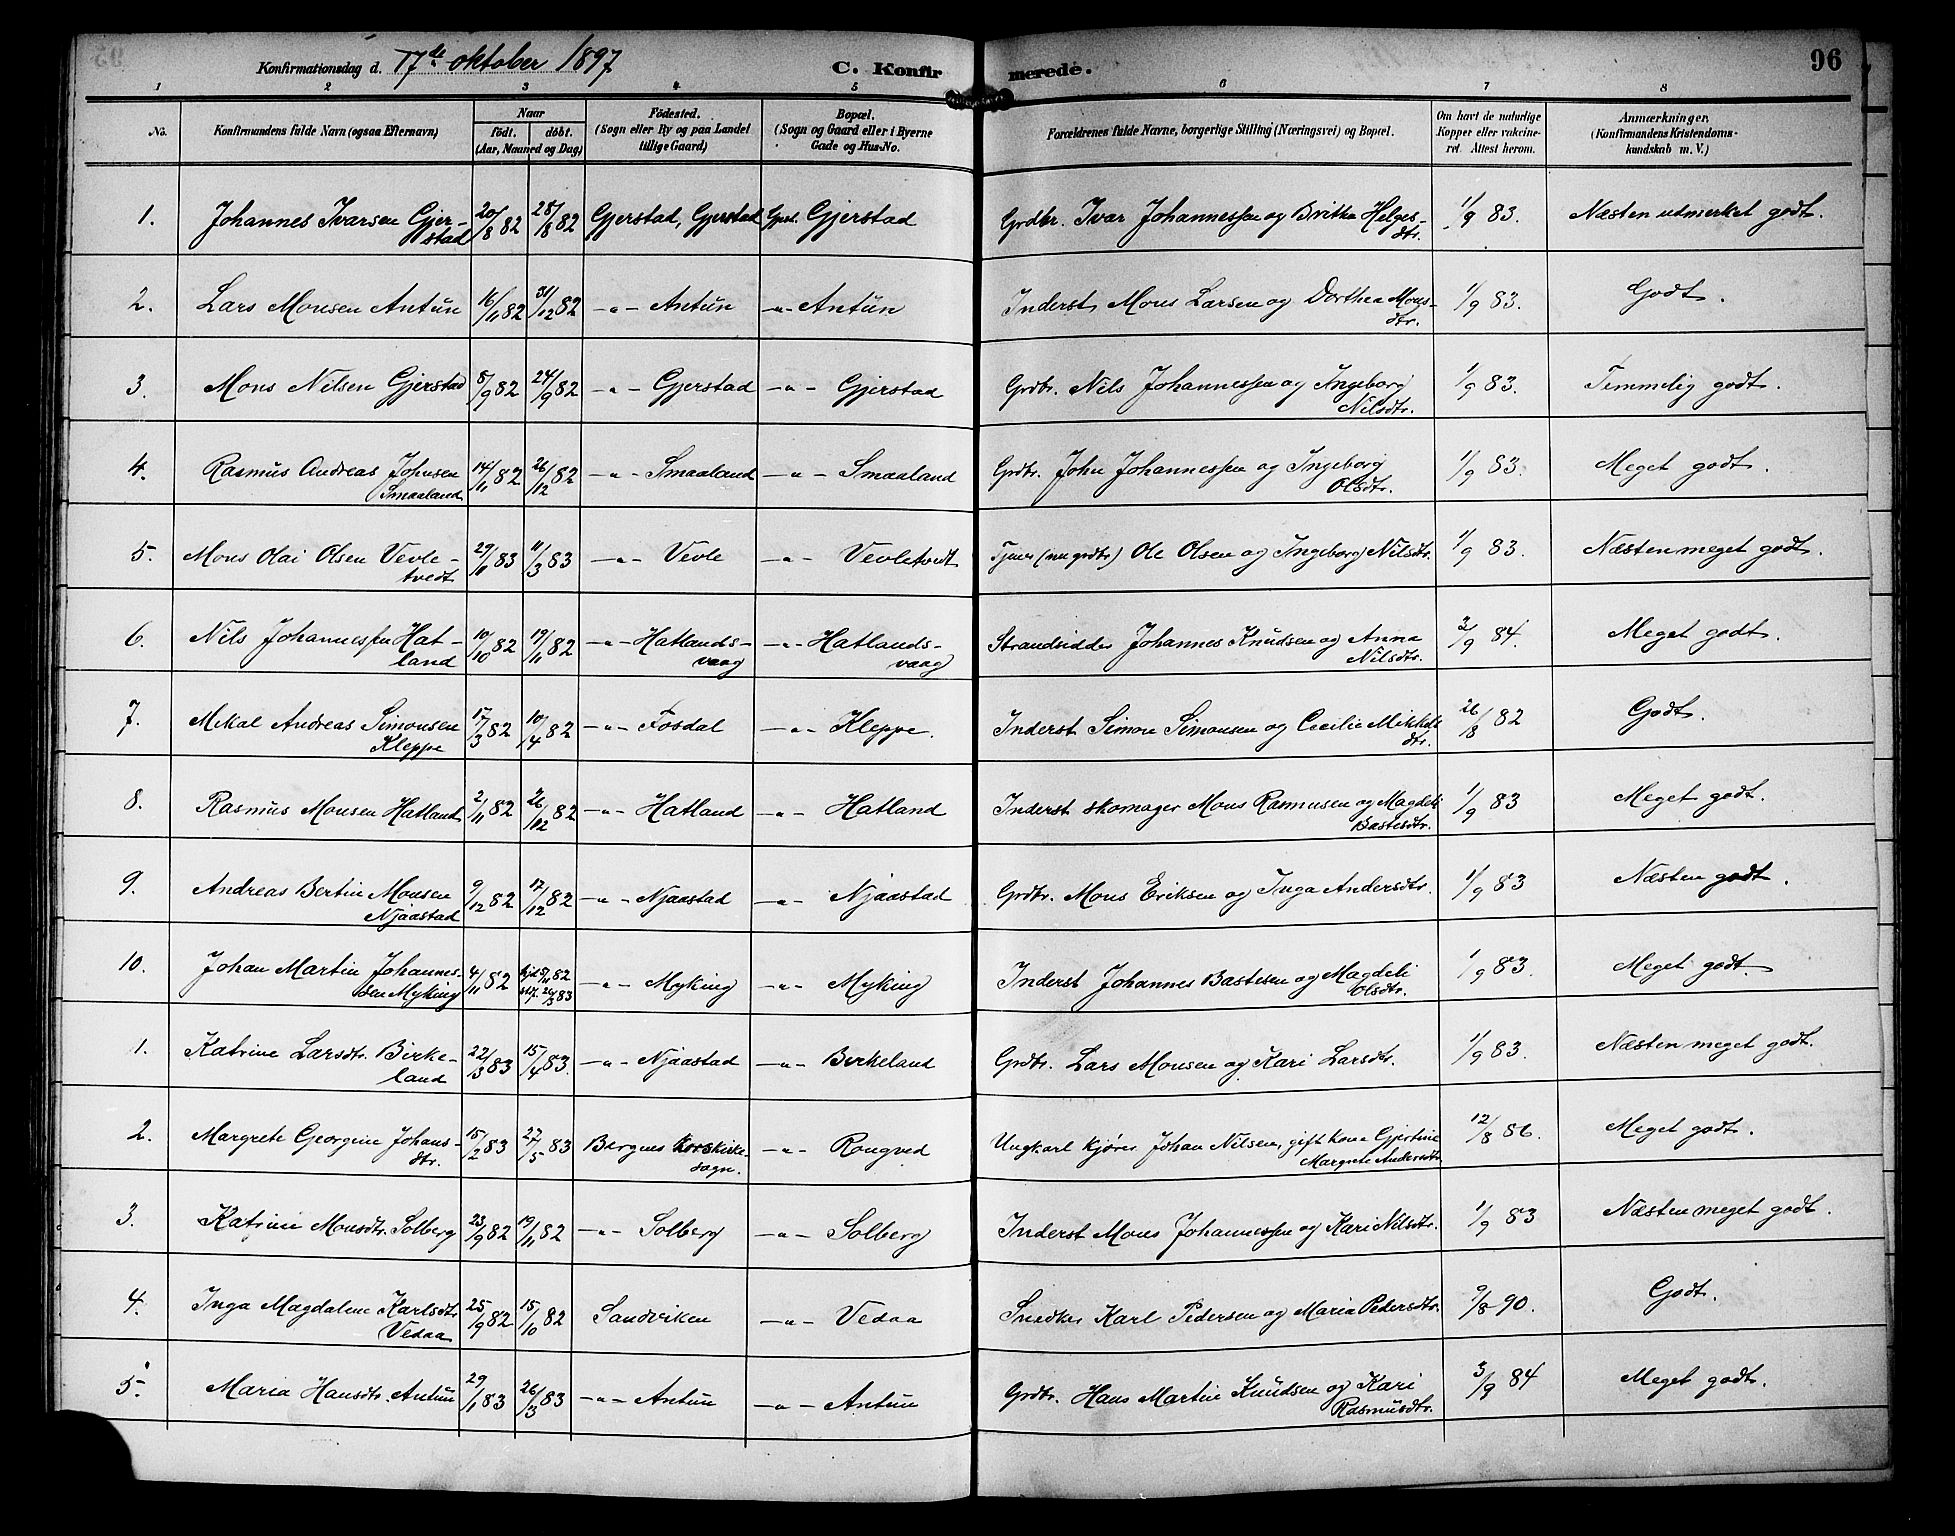 Konfirmationsdag d. 17de oktober 1897 C. Konfirmerede. 96
1 2 3 4 5 6 7 8
No. Konfirmandens fulde Navn (ogsaa Efternavn) Naar født. døbt. (Aar, Maaned og Dag) Fødested. (Sogn eller By og paa Landet tillige Gaard) Bopæl. (Sogn og Gaard eller i Byerne Gade og Hus-No. Forældrenes fulde Navne, borgerlige Stilling (Næringsvei) og Bopæl. Om havt de naturlige Kopper eller vakcineret. Attest herom. Anmærkninger. (Konfirmandens Kristendomskundskab m. V.)
1. Johannes Ivarsen Gjerstad 20/8 82 28/8 82 Gjerstad, Gjerstad Gjerst. Gjerstad Grdbr. Ivar Johannessen og Britha Helgesdtr. 1/9 83. Næsten udmerket godt.
2. Lars Monsen Antun 16/11 82 31/12 82 —"— Antun —"— Antun Inderst Mons Larsen og Dorthea Monsdtr. 1/9 83. Godt.
3. Mons Nilsen Gjerstad 8/9 82 24/9 82 —"— Gjerstad —"— Gjerstad Grdbr. Nils Johannessen og Ingeborg Nilsdtr. 1/9 83. Temmelig godt.
4. Rasmus Andreas Johnsen Smaaland 14/11 82 26/12 82 —"— Smaaland —"— Smaaland Grdbr. John Johannessen og Ingeborg Olsdtr. 1/9 83. Meget godt.
5. Mons Olai Olsen Vevletvedt 29/1 83 11/3 83 —"— Vevle —"— Vevletvedt Tjener (nu grdbr) Ole Olsen og Ingeborg Nilsdtr. 1/9 83. Næsten meget godt.
6. Nils Johannessen Hatland 10/10 82 19/11 82 —"— Hatlandsvaag —"— Hatlandsvaag Strandsidder Johannes Knudsen og Anna Nilsdtr. 3/9 84. Meget godt.
7. Mikal Andreas Simonsen Kleppe 17/3 82 10/4 82 —"— Fosdal —"— Kleppe. Inderst Simon Simonsen og Cecilie Mikkelsdtr. 26/8 82 Godt.
8. Rasmus Monsen Hatland 2/11 82 26/12 82 —"— Hatland —"— Hatland Inderst skomager Mons Rasmusen og Magdeli Bastesdtr. 1/9 83 Meget godt.
9. Andreas Bertin Monsen Njaastad 9/12 82 17/12 82 —"— Njaastad —"— Njaastad Grdbr. Mons Eriksen og Inga Andersdtr. 1/9 83 Næsten godt.
10. Johan Martin Johannessen Myking 4/11 82 hjd 5/11 82 stf. 26/3 83 —"— Myking —"— Myking Inderst Johannes Bastesen og Magdeli Olsdtr. 1/9 83. Meget godt
1. Katrine Larsdtr. Birkeland 22/3 83 15/4 83. —"— Njaastad —"— Birkeland Grdbr. Lars Monsen og Kari Larsdtr. 1/9 83. Næsten meget godt.
2. Margrete Georgine Johansdtr. 15/2 83 27/5 83 Bergens korskirkesogn. —"— Rongved Ungkarl kjører Johan Nilsen, gift kone Gjertine Margrete Andersdtr. 12/8 86. Meget godt.
3. Katrine Monsdtr. Solberg 23/9 82 19/11 82 —"— Solberg —"— Solberg Inderst Mons Johannessen og Kari Nilsdtr. 1/9 83 Næsten meget godt.
4. Inga Magdalene Karlsdtr Vedaa 25/9 82 15/10 82 Sandviken —"— Vedaa Snedker Karl Pedersen og Maria Pedersdtr. 9/8 90. Godt.
5. Maria Hansdtr. Antun 29/1 83 26/3 83 —"— Antun —"— Antun Grdbr. Hans Martin Knudsen og Kari Rasmusdtr. 3/9 84 Meget godt.